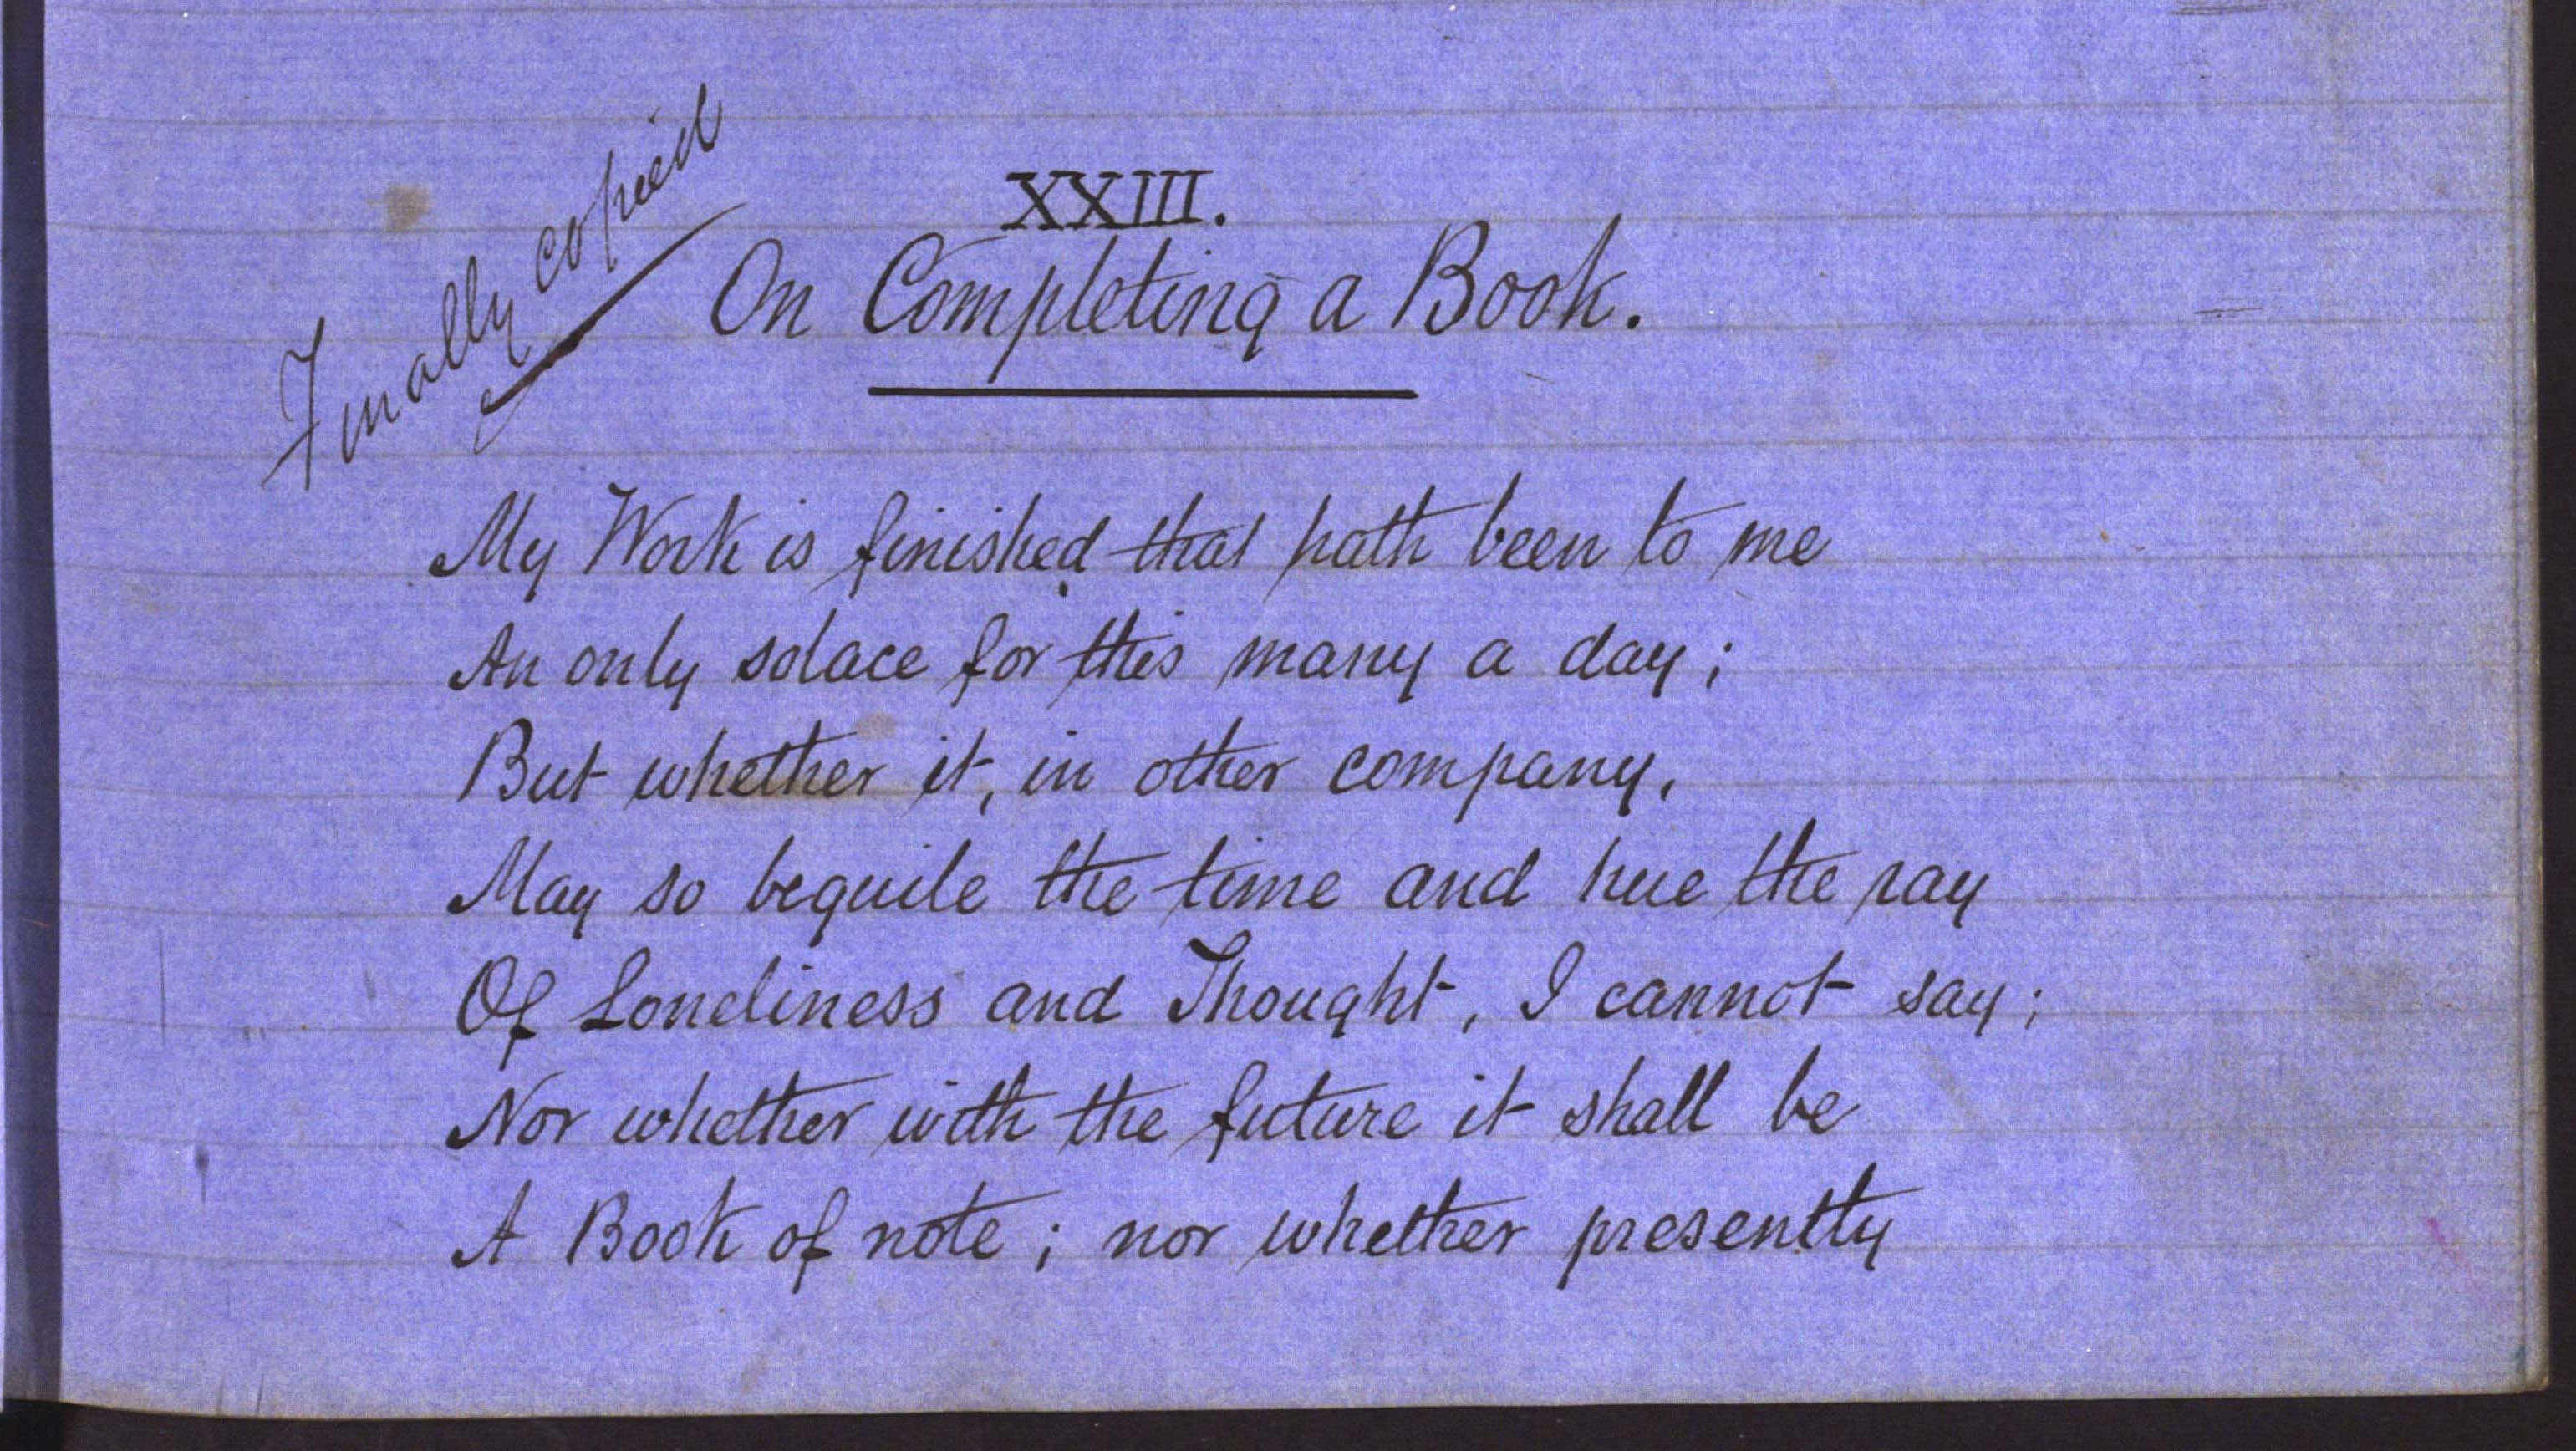 Finally copied
XXIII.
On Completing a Book.
My Work is finished that hath been to me
An only solace for this many a day;
But whether it, in other company,
May so beguile the time and hue the ray
Of Loneliness and Thought, I cannot say;
Nor whether with the future it shall be
A Book of note; nor whether presently